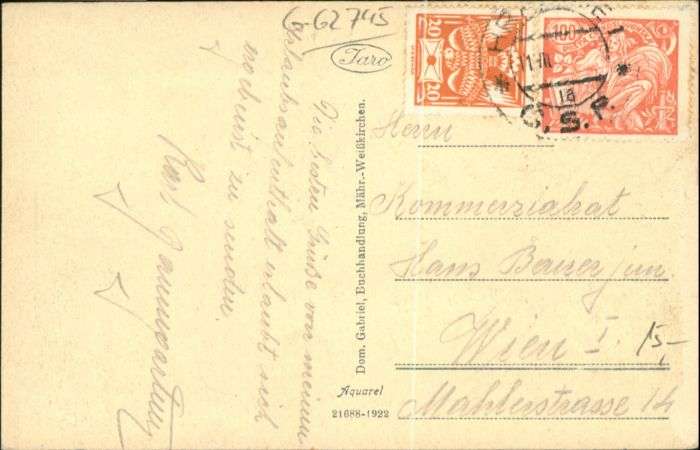 G-62745
Taro
Die besten Grüße von meinem
Urlaubsaufenthalt erlaubt sich
noch einst zu senden
Karl
Dom. Gabriel, Buchhandlung, Mähr.-Weißkirchen.
Aquarel
21688-1922
20 20
100
Č.S.P.
Herrn
Kommerzialrat
Hans Bauer jun.
Wien I.
15,-
Mahlerstrasse 14